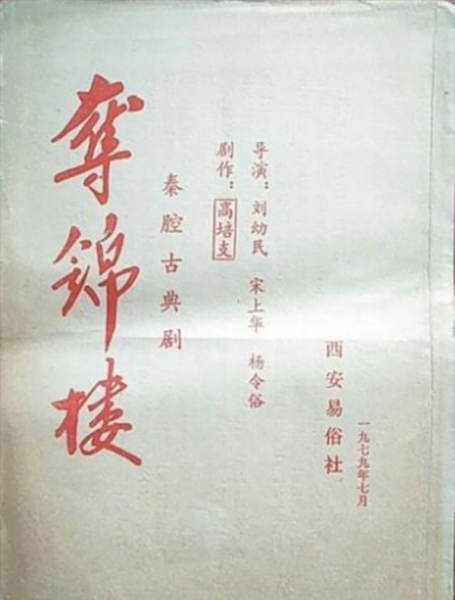 夺锦楼
秦腔古典剧
剧作：高培支
导演：刘幼民 宋上华 杨令俗
西安易俗社
一九七九年七月